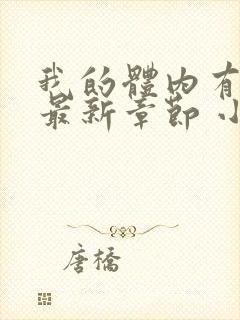 我的體內有
最新章節 小
唐橋